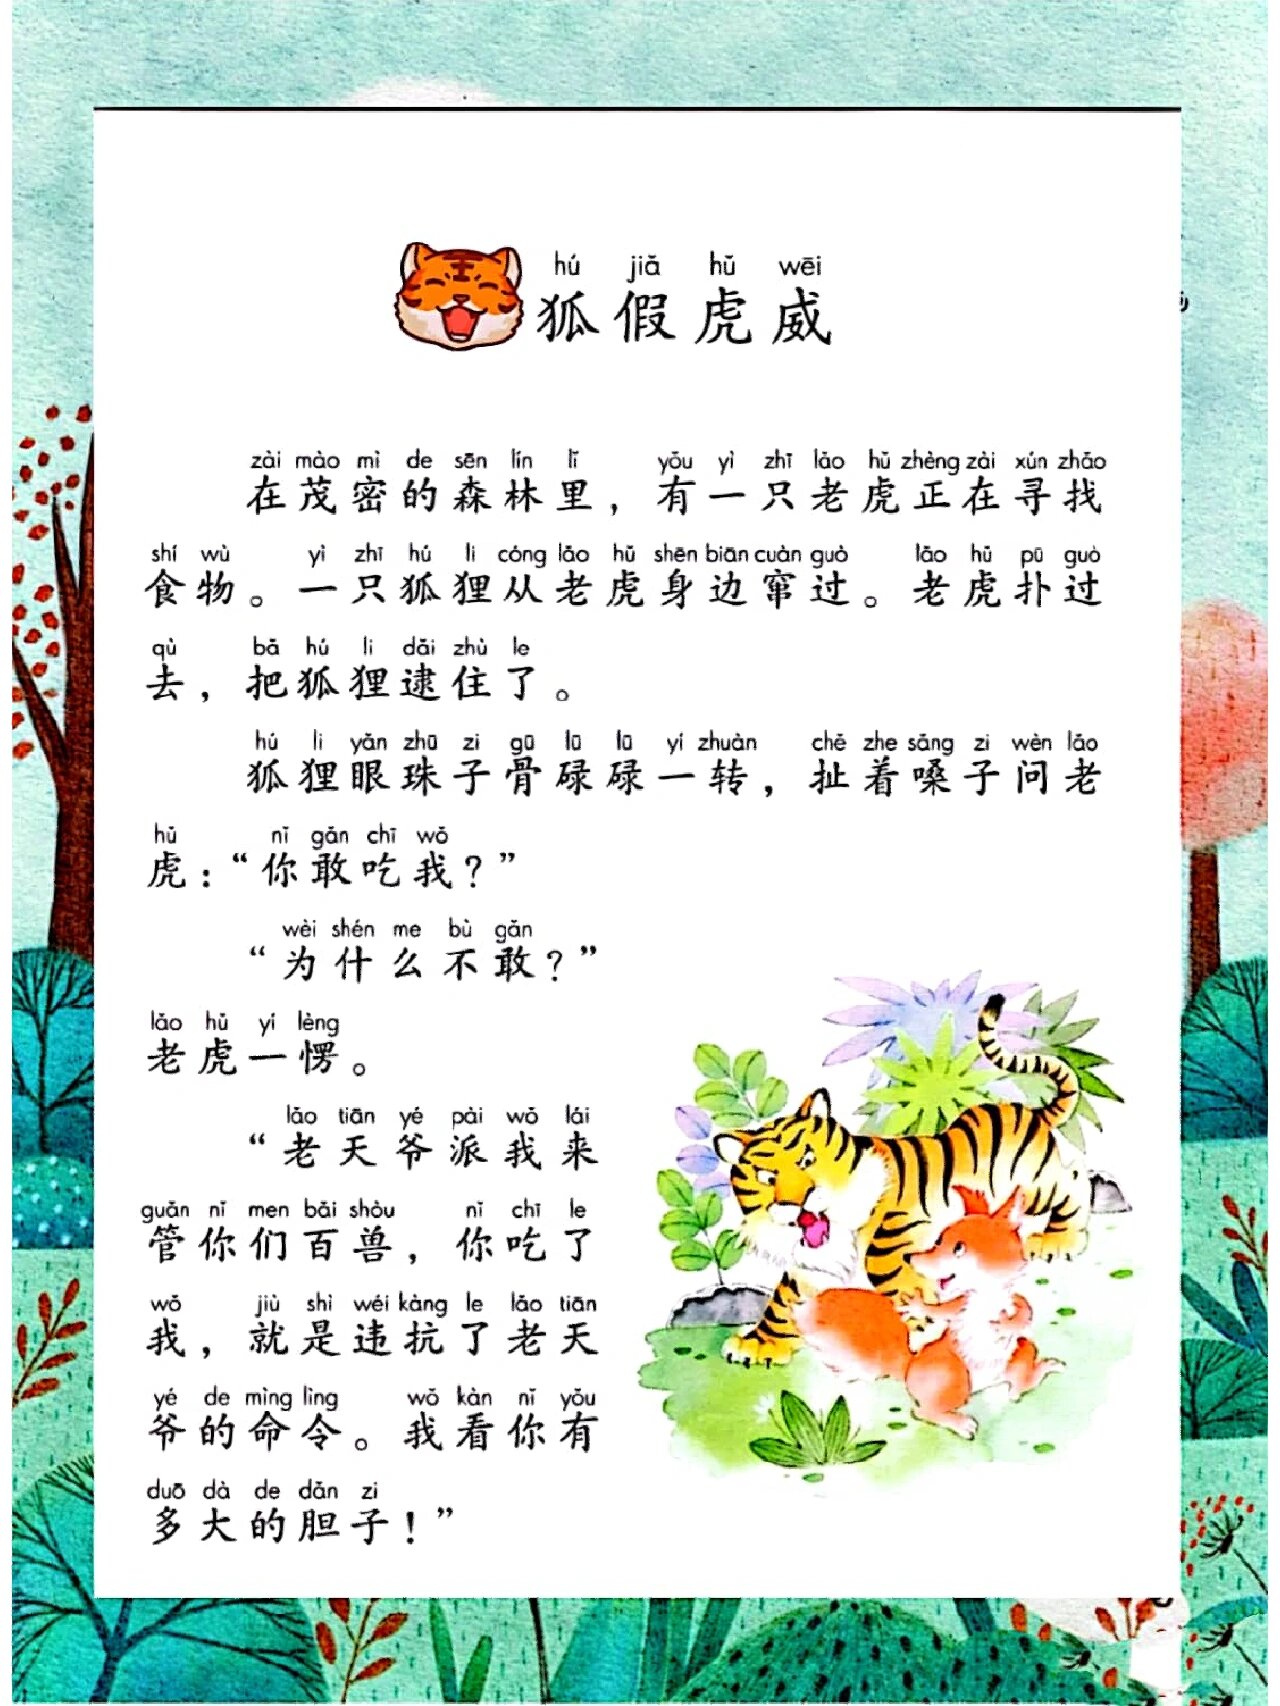 hú jiǎ hǔ wēi
狐假虎威
zài mào mì de sēn lín lǐ yǒu yì zhī lǎo hǔ zhèng zài xún zhǎo
在茂密的森林里，有一只老虎正在寻找
shí wù yì zhī hú li cóng lǎo hǔ shēn biān cuàn guò lǎo hǔ pū guò
食物。一只狐狸从老虎身边窜过。老虎扑过
qù bǎ hú li dǎi zhù le
去，把狐狸逮住了。
hú li yǎn zhū zi gū lū lū yí zhuàn chě zhe sǎng zi wèn lǎo
狐狸眼珠子骨碌碌一转，扯着嗓子问老
hǔ nǐ gǎn chī wǒ
虎：“你敢吃我？”
wèi shén me bù gǎn
“为什么不敢？”
lǎo hǔ yí lèng
老虎一愣。
lǎo tiān yé pài wǒ lái
“老天爷派我来
guǎn nǐ men bǎi shòu nǐ chī le
管你们百兽，你吃了
wǒ jiù shì wéi kàng le lǎo tiān
我，就是违抗了老天
yé de mìng lìng wǒ kàn nǐ yǒu
爷的命令。我看你有
duō dà de dǎn zi
多大的胆子！”